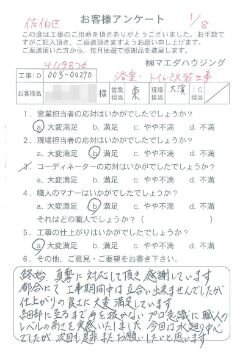 佐伯区
お客様アンケート
1/8
この度は工事のご用命を頂きありがとうございました。お手数で
すがご記入頂き、ご返送頂きますようお願い申し上げます。
ご返送頂いた方から、毎月抽選で感謝品を進呈します。
㈱マエダハウジング
工事ID
003-00270
浴室・トイレ改装工事
お客様名
様
営業担当
東
現場担当
大濱
C.C担当
1. 営業担当者の応対はいかがでしたでしょうか?
a 大変満足 b. 満足 c. やや不満 d. 不満
2. 現場担当者の応対はいかがでしたでしょうか?
a. 大変満足 b 満足 c. やや不満 d. 不満
3. コーディネーターの応対はいかがでしたでしょうか?
a. 大変満足 b. 満足 c. やや不満 d. 不満
4. 職人のマナーはいかがでしたでしょうか?
a. 大変満足 b 満足 c. やや不満 d. 不満
それはどの職人でしょうか?( )
5. 工事の仕上がりはいかがでしたでしょうか?
a 大変満足 b. 満足 c. やや不満 d. 不満
6. その他、ご意見・ご要望をお書き下さい。
終始 真摯に対応して頂き感謝しています
都合にて工事期間中は立会い出来ませんでしたが
仕上がりの良さに大変満足しています
細部に至るまで手を抜かない プロ意識に職人の
レベルの高さを実感いたしました 今回は水廻り中心
でしたが 次回も是非またお願いしたいと思います